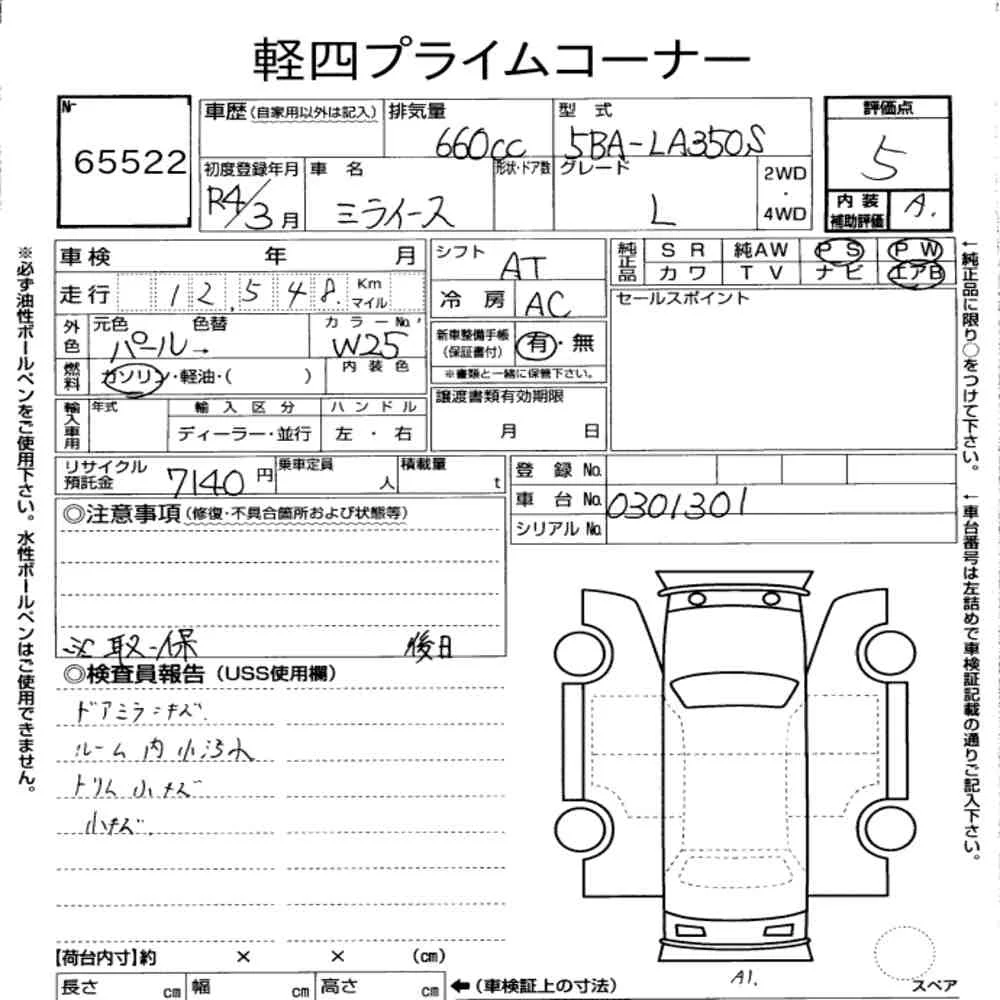 軽四プライムコーナー
№ 65522
車歴(自家用以外は記入) 排気量 660cc 型式 5BA-LA350S
初度登録年月 R4/3月 車名 ミライース 形状・ドア数 グレード L 2WD・4WD
評価点 5
内装補助評価 A.
車検 年 月
走行 12,548. Km マイル
外色 元色 パール→ 色替 カラーNo. W25
燃料 ガソリン・軽油・( ) 内装色
輸入車用 年式 輸入区分 ディーラー・並行 ハンドル 左・右
シフト AT
冷房 AC
新車整備手帳(保証書付) 有・無
※書類と一緒に保管下さい。
譲渡書類有効期限 月 日
純正品 SR 純AW PS PW
カワ TV ナビ エアB
セールスポイント
リサイクル預託金 7140円 乗車定員 人 積載量 t
登録No.
車台No. 0301301
シリアルNo.
◎注意事項(修復・不具合箇所および状態等)
取・保 後日
◎検査員報告(USS使用欄)
ドアミラーキズ
ルーム内小汚れ
トリム小キズ
小キズ
【荷台内寸】約 × × (cm)
長さ cm 幅 cm 高さ cm ←(車検証上の寸法)
A1.
スペア
※必ず油性ボールペンをご使用下さい。水性ボールペンはご使用できません。
←純正品に限り○をつけて下さい。
←車台番号は左詰めで車検証記載の通りご記入下さい。